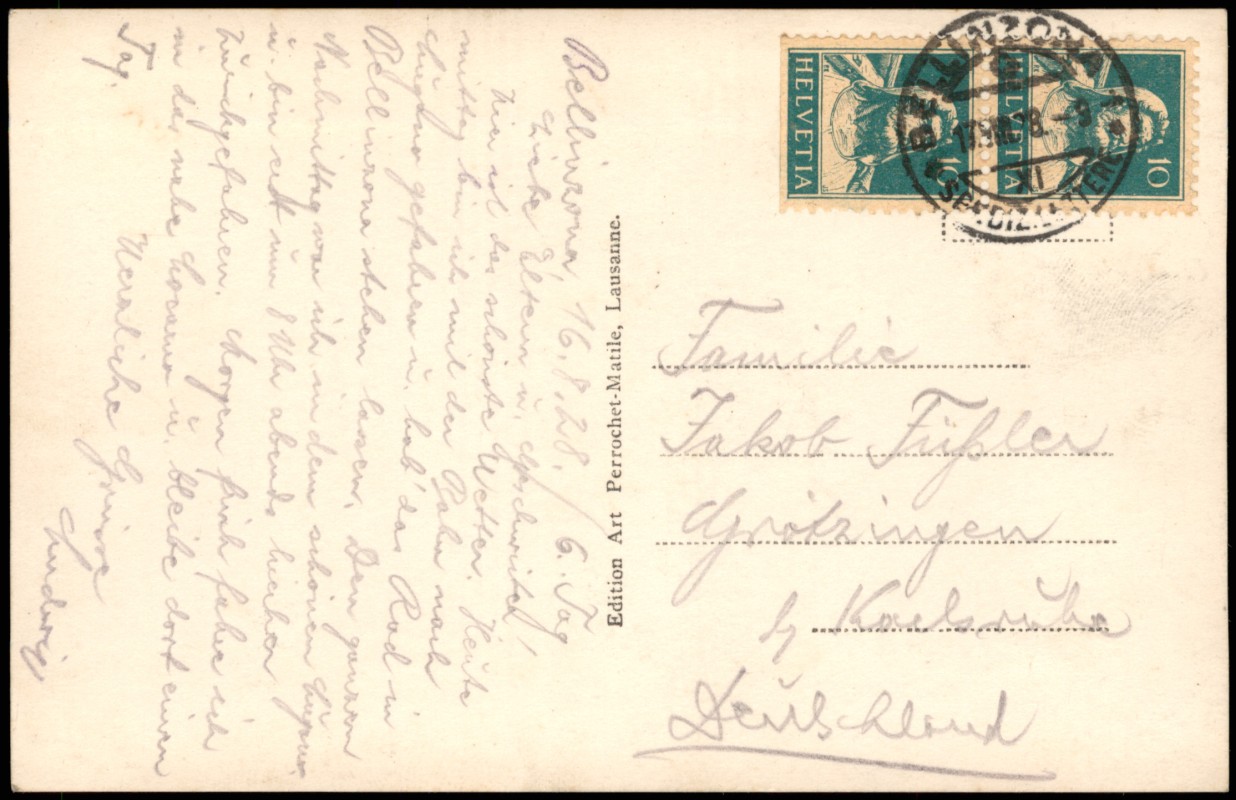 Bellinzona, 16.8.28. / 6. Tag
Liebe Eltern u. Geschwister!
Hier ist das schönste Wetter. Heute
mittag bin ich mit der Bahn nach
Lugano gefahren u. hab' das Rad in
Bellinzona stehen lassen. Den ganzen
Nachmittag war ich in dem schönen Lugano
u. bin erst um 8 Uhr abends hierher
zurückgefahren. Morgen früh fahre ich
in das nahe Locarno u. bleibe dort einen
Tag. Herzliche Grüsse
Ludwig
Edition Art Perrochet-Matile, Lausanne.
HELVETIA
10
HELVETIA
10
BELLINZONA 1
17.VIII.28.-9
XI
SPEDIZ. LETTERE
Familie
Jakob Füßler
Grötzingen
b/ Karlsruhe
Deutschland